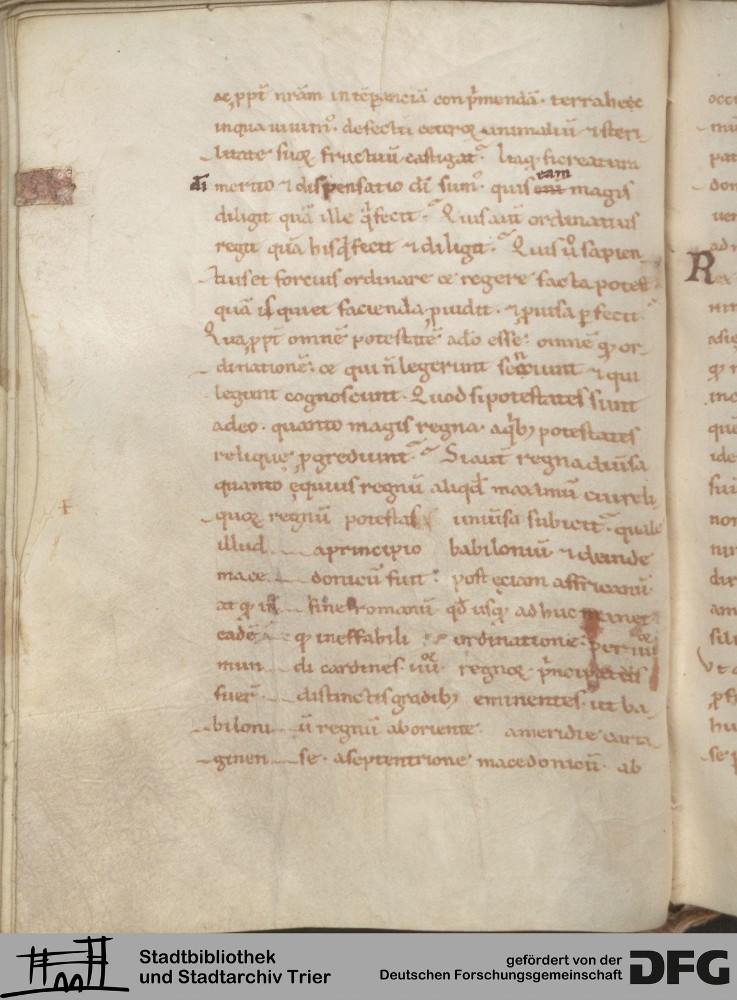 ac ꝓpt̄ nr̄am intēꝑanciā conp̄mendā· terra hec
in qua uiuim᷒· defectu ceteroꝝ animaliū ⁊ steri-
litate suoꝝ fructuū castigat᷑· Itaq; si creatura
dī merito ⁊ dispensatio dī sum᷒· quis eni eam magis
diligit quā ille q̄ fecit· Quis aut̄ ordinatius
regit quā his q̄ fecit ⁊ diligit· Quis u̅o sapien-
tius et forcius ordinare ce regere facta potest
quā is qui et facienda ꝓuidit· ⁊ ꝓuisa ꝑfecit·
Qua ꝓpt̄ omnē potestatē a do esse· omnē q; or-
dinationē· ce qui n̄ legerunt senciunt ⁊ qui
legunt cognoscunt· Quod si potestates sunt
a deo· quanto magis regna· a qb; potestates
relique ꝓgrediunt᷑· Si aut̄ regna diuisa
quanto ęquius regnū aliqd̄ maximū cui reli-
quoꝝ regnū potestas uniuisa subicit᷑· quale
illud a principio babiloniū ⁊ deinde
mace donicū fuit· post eciam affricanū
at q; in fine romanū qd̄ usq; ad huc manet
eadē q; ineffabili ordinatione· per iiiior
mun di cardines iiiior regnoꝝ p̄ncipatus
fuer̄ distinctis gradib; eminentes· ut ba-
biloni ū regnū ab oriente· a meridie carta-
ginen se· a septentrione macedonicū· ab
R
Stadtbibliothek
und Stadtarchiv Trier
gefördert von der
Deutschen Forschungsgemeinschaft
DFG